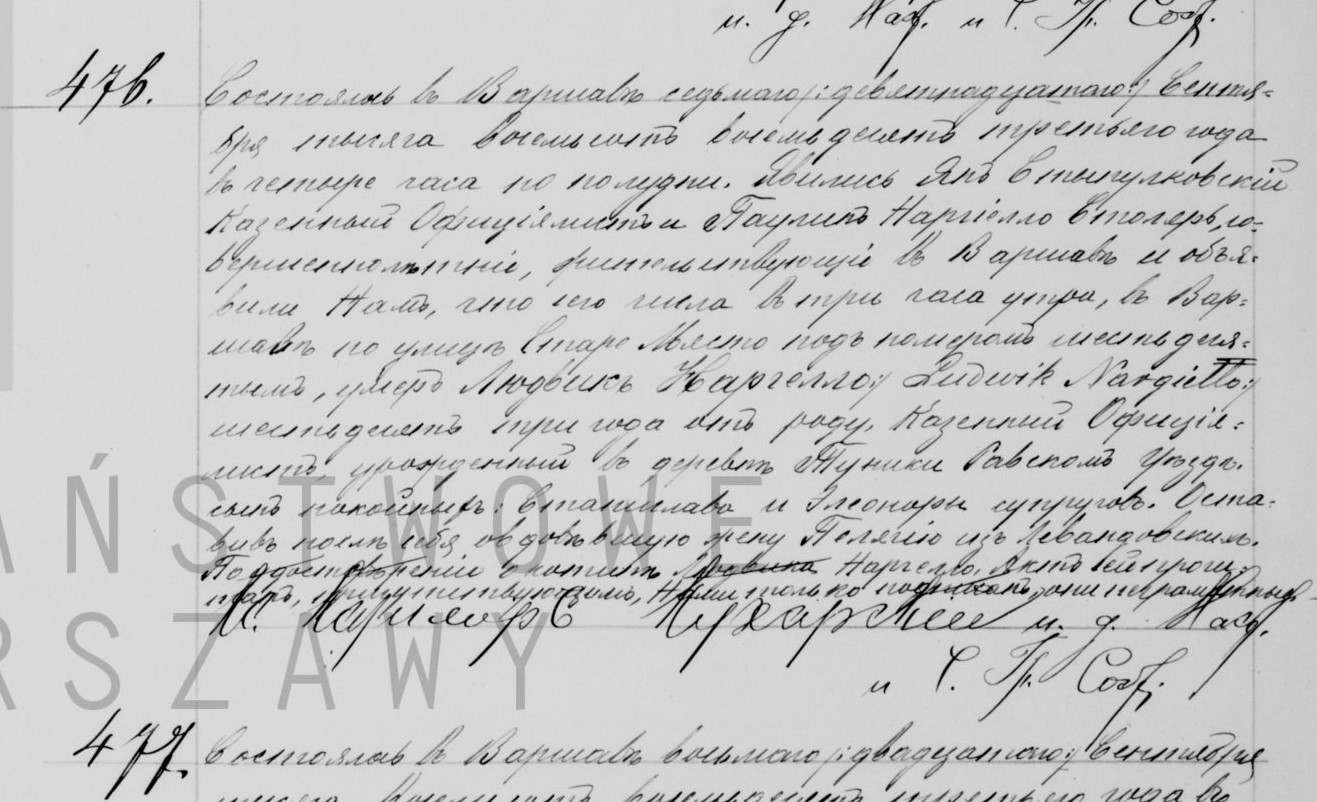 и. д. Наст. и С. Гр. Сост.
476. Состоялось въ Варшавѣ седьмаго /:девятнадцатаго:/ Сентя=
бря тысяча восемьсотъ восемьдесятъ третьяго года
въ четыре часа по полудни. Явились Янъ Стыпулковскій
Казенный Офиціялистъ и Паулинъ Наргіелло Столеръ, со-
вершеннолѣтніе, жительствующіе въ Варшавѣ и объя=
вили Намъ, что сего числа въ три часа утра, въ Вар=
шавѣ по улицѣ Старе Място подъ номеромъ шестьдеся=
тымъ, умеръ Людвикъ Наргелло:/ Ludwik Nargiełło:/
шестьдесятъ три года отъ роду, Казенный Офиція=
листъ, урожденный въ деревнѣ Туники Равскомъ Уѣздѣ.
сынъ покойныхъ: Станислава и Элеоноры супруговъ. Оста=
вивъ послѣ себя овдовѣвшую жену Пелягію изъ Левандовскихъ.
По удостовѣреніи о кончинѣ Людвика Наргелло, Актъ сей прочи=
танъ, присутствующимъ, Нами только подписанъ, они неграмотны.
Кс. Каролъ Кухарскій и. д. Наст.
и С. Гр. Сост.
477. Состоялось въ Варшавѣ восьмаго /:двадцатаго:/ Сентября
тысяча восемьсотъ восемьдесятъ третьяго года въ
PAŃSTWOWE
WARSZAWY